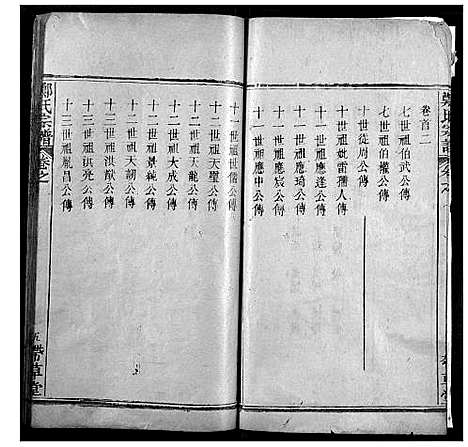 鄭氏宗譜 卷之
卷首二
七世祖伯武公傳
七世祖伯權公傳
十世從周公傳
十世祖妣雷孺人傳
十一世祖應逢公傳
十一世祖應琦公傳
十一世祖應宸公傳
十一世祖應中公傳
十一世祖世儒公傳
十二世祖天聖公傳
十二世祖天龍公傳
十二世祖大成公傳
十二世祖景純公傳
十二世祖天詡公傳
十三世祖洪猷公傳
十三世祖洪亮公傳
十三世祖胤昌公傳
鄭氏宗譜 卷之
帶草堂